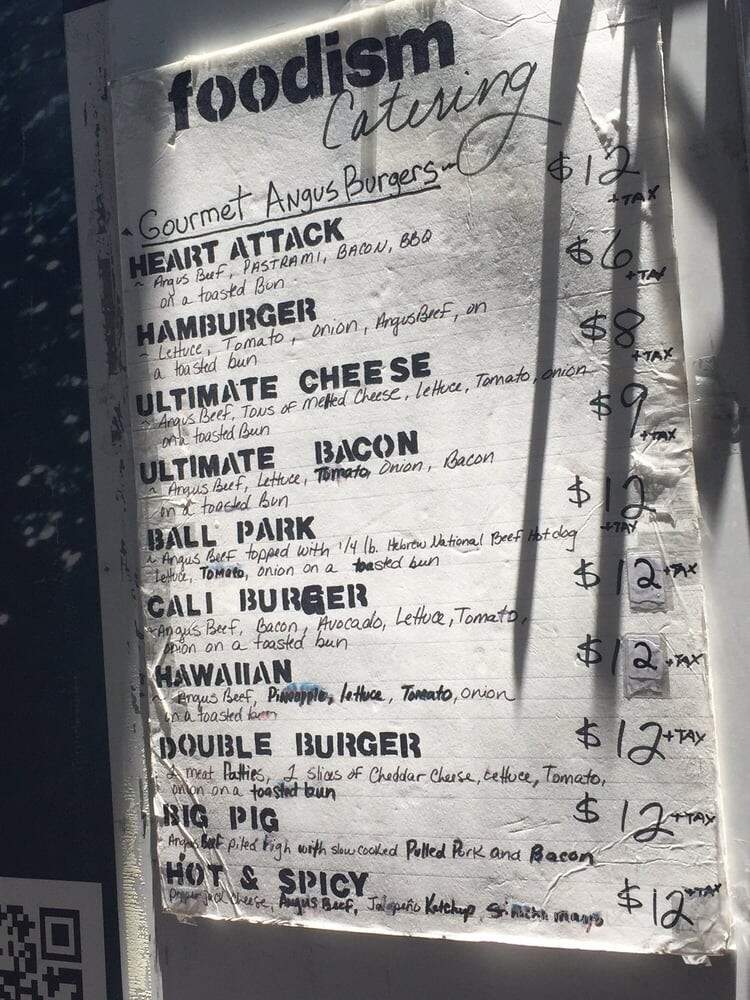 foodism
Catering
Gourmet Angus Burgers
HEART ATTACK $12 +TAX
~ Angus Beef, PASTRAMI, BACON, BBQ
on a toasted Bun
HAMBURGER $6 +TAX
~ Lettuce, Tomato, onion, Angus Beef, on
a toasted bun
ULTIMATE CHEESE $8 +TAX
~ Angus Beef, Tons of melted Cheese, lettuce, Tomato, onion
on a toasted Bun
ULTIMATE BACON $9 +TAX
~ Angus Beef, Lettuce, Tomato, Onion, Bacon
on a toasted Bun
BALL PARK $12 +TAX
~ Angus Beef topped with 1/4 lb. Hebrew National Beef Hotdog
Lettuce, Tomato, onion on a toasted bun
CALI BURGER $12 +TAX
~ Angus Beef, Bacon, Avocado, Lettuce, Tomato,
onion on a toasted bun
HAWAIIAN $12 +TAX
~ Angus Beef, Pineapple, lettuce, Tomato, onion
on a toasted bun
DOUBLE BURGER $12 +TAX
2 meat Patties, 2 slices of Cheddar Cheese, Lettuce, Tomato,
onion on a toasted bun
BIG PIG $12 +TAX
Angus Beef piled high with slow cooked Pulled Pork and Bacon
HOT & SPICY $12 +TAX
Pepperjack cheese, Angus Beef, Jalapeño Ketchup, Sriracha mayo